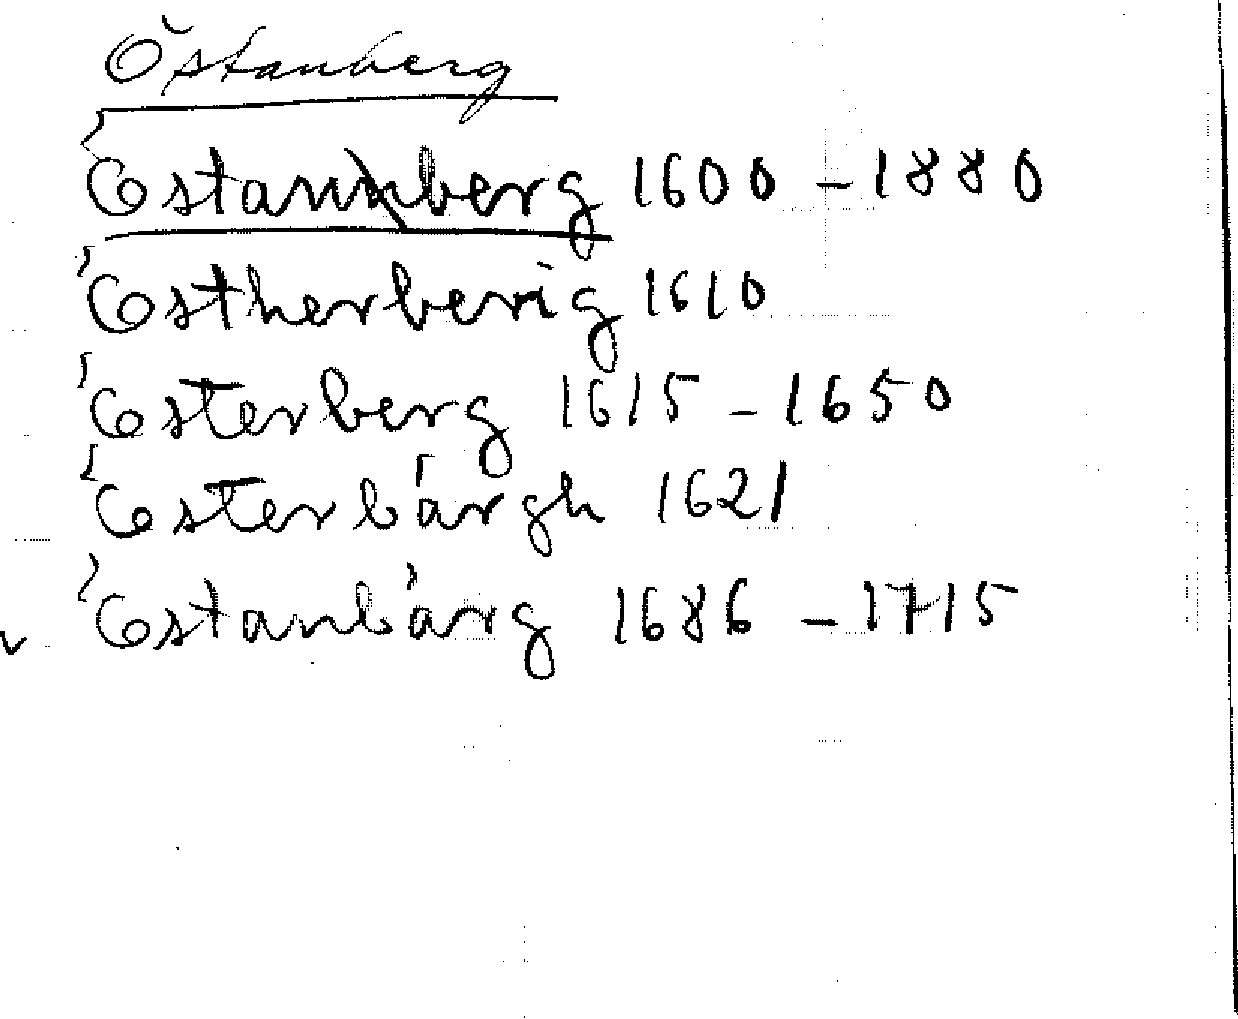 Östanberg
Östanberg 1600 - 1880
Östherberig 1610
Österberg 1615 - 1650
Österbärgh 1621
Östanbärg 1686 - 1715